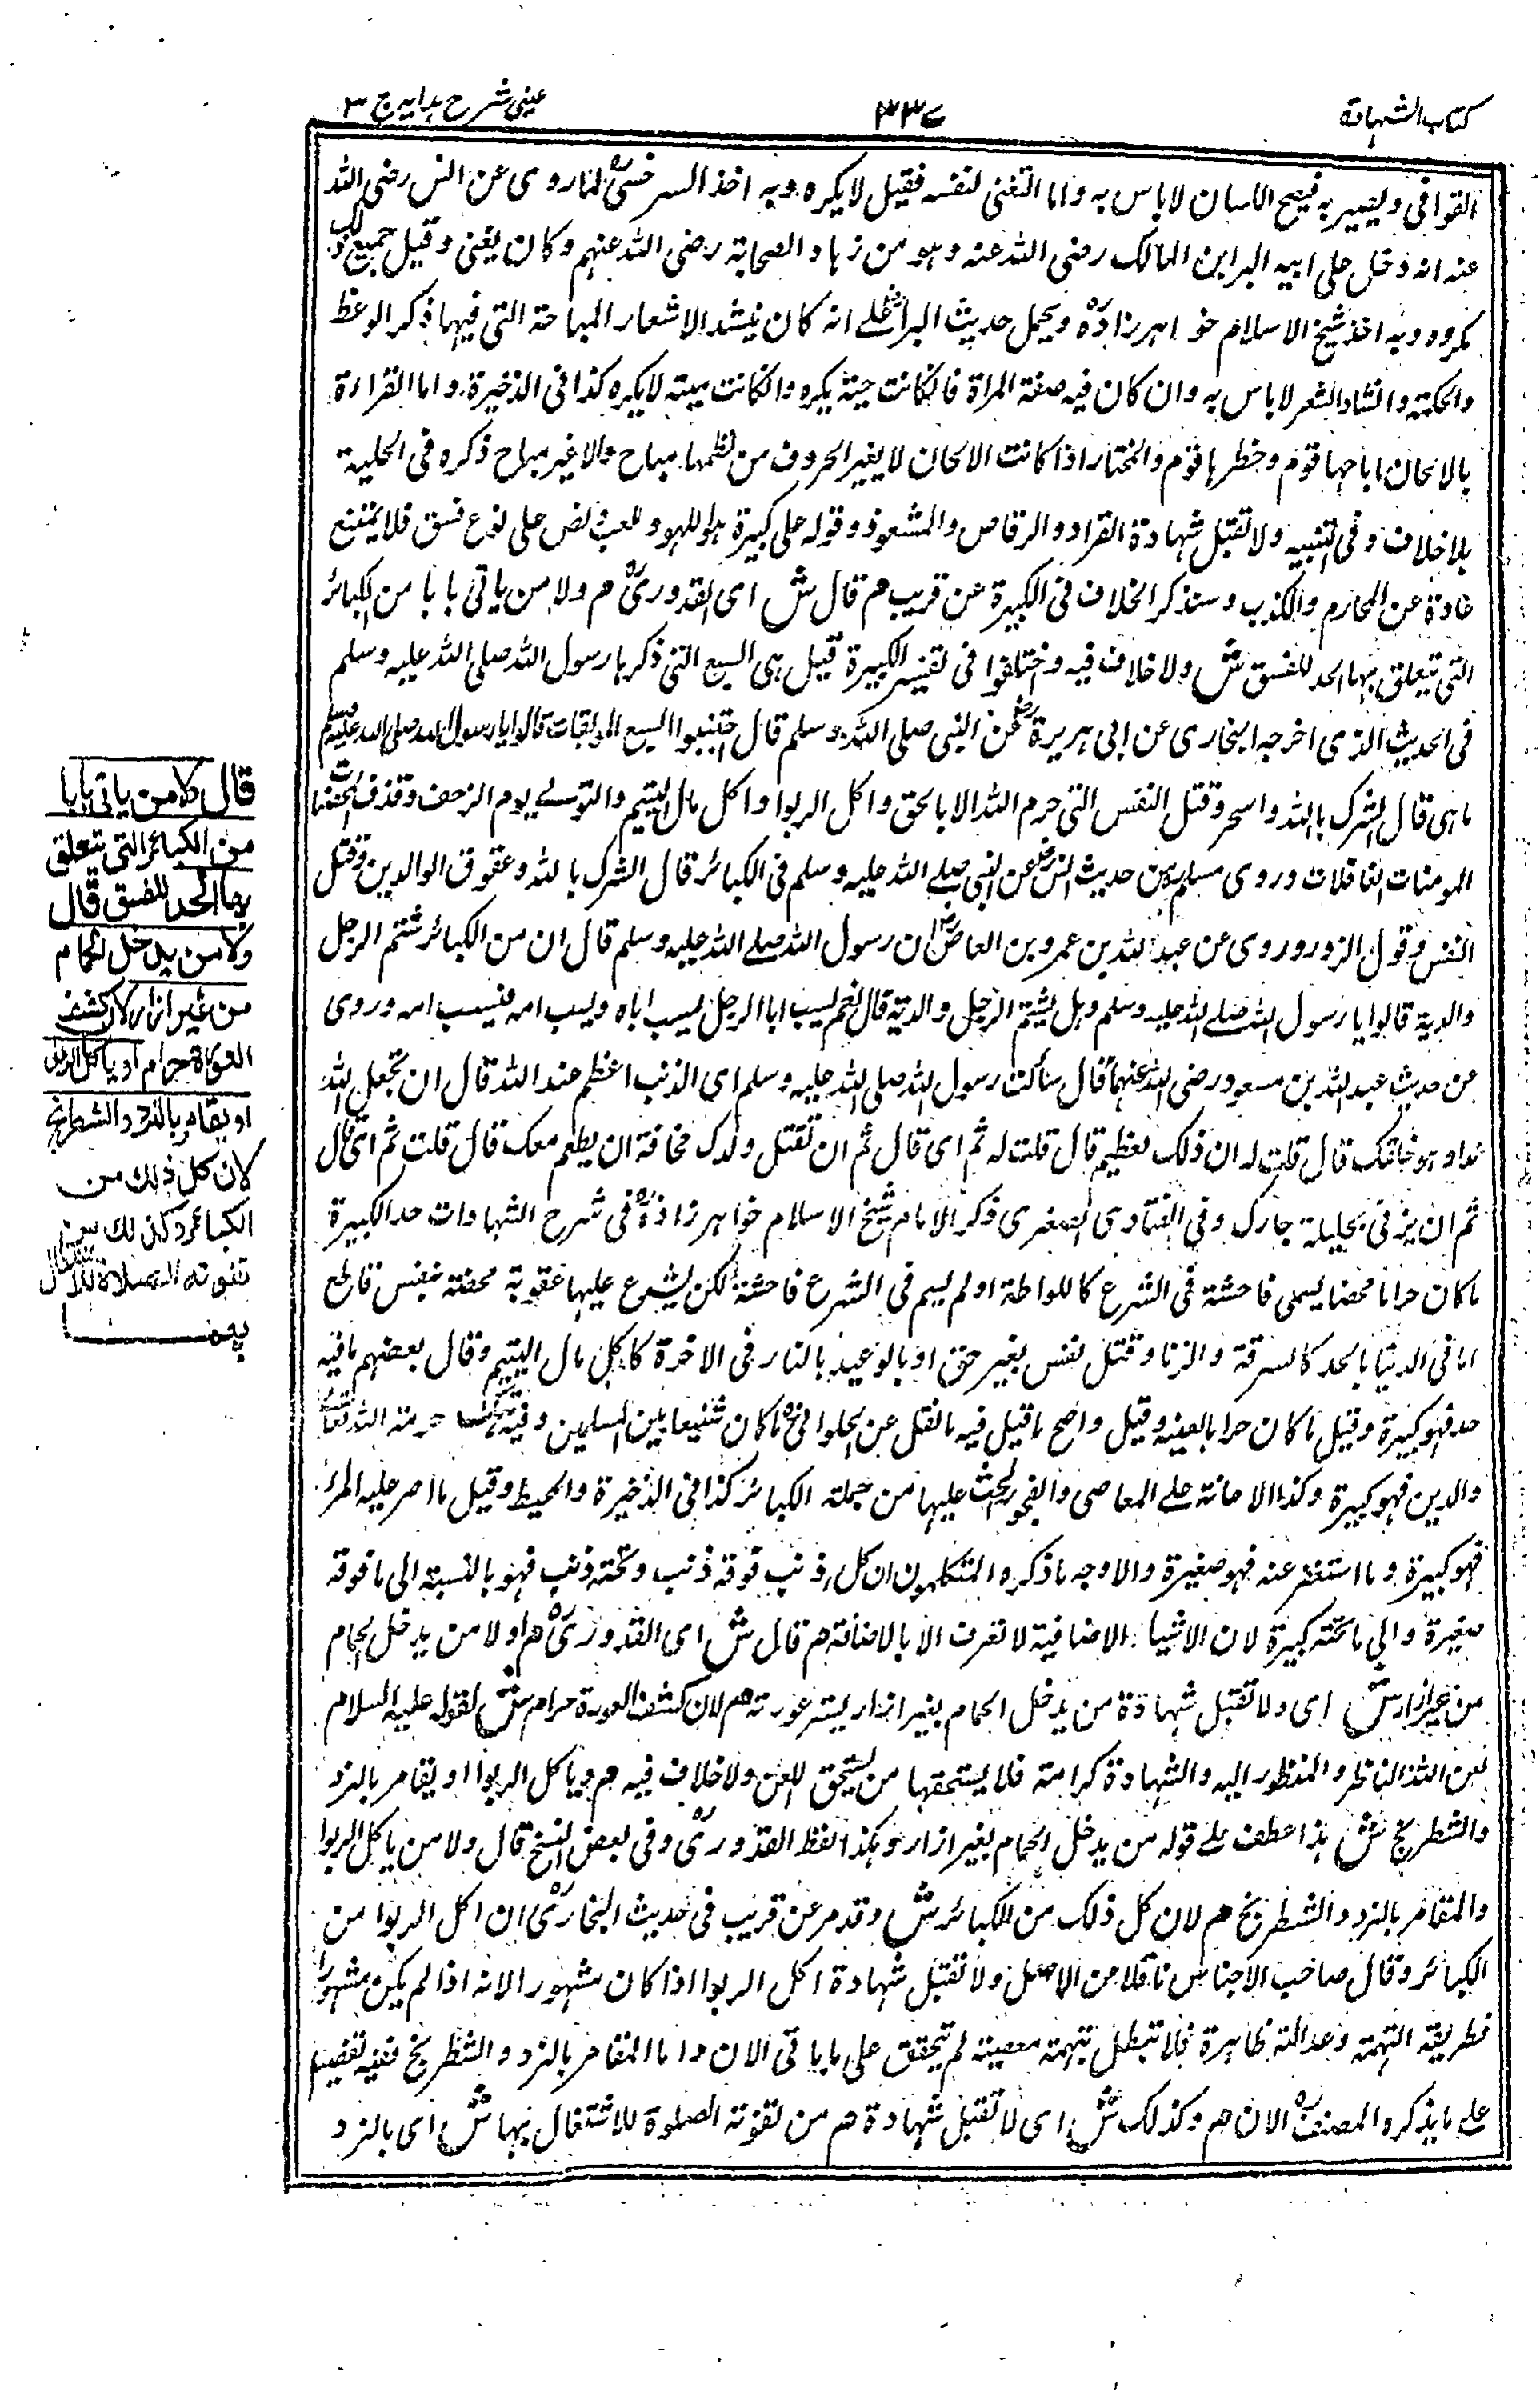 كتاب الشهادة
٣٣٧
عینی شرح ہدایہ ج ٣
القوافی ویصیر بہ فصیح اللسان لا باس بہ واما التغنی لنفسہ فقیل لا یکرہ وبہ اخذ السرخسیؒ لما روی عن انس رضی اللہ
عنہ انہ دخل علی اخیہ البراء بن المالک رضی اللہ عنہ وہو من زہاد الصحابۃ رضی اللہ عنہم وکان یغنی وقیل جمیع ذلک
مکروہ وبہ اخذ شیخ الاسلام خواہر زادہؒ ویحمل حدیث البراءؓ علے انہ کان ینشد الاشعار المباحۃ التی فیہا ذکر الوعظ
والحکمۃ وانشاد الشعر لا باس بہ وان کان فیہ صفۃ المراۃ فانکانت حیۃ یکرہ وانکانت میتہ لا یکرہ کذا فی الذخیرۃ واما القراءۃ
بالالحان اباحہا قوم وحظرہا قوم والمختار اذا کانت الالحان لا یغیر الحروف من نظمہا مباح والا غیر مباح ذکرہ فی الحلیۃ
بلا خلاف وفی التنبیہ ولا تقبل شہادۃ القراد والرقاص والمشعوذ وقولہ علی کبیرۃ ہو اللہو واللعب نص علی نوع فسق فلا یمتنع
عادۃ عن المحارم والکذب وسنذکر الخلاف فی الکبیرۃ عن قریب م قال ش ای القدوریؒ م ولا من یاتی بابا من الکبائر
التی یتعلق بہا الحد للفسق ش ولا خلاف فیہ واختلفوا فی تفسیر الکبیرۃ قیل ہی السبع التی ذکرہا رسول اللہ صلی اللہ علیہ وسلم
فی الحدیث الذی اخرجہ البخاری عن ابی ہریرۃؓ عن النبی صلی اللہ وسلم قال اجتنبوا السبع الموبقات قالوا یا رسول اللہ صلی اللہ علیہ وسلم
ما ہی قال الشرک باللہ واسحر وقتل النفس التی حرم اللہ الا بالحق واکل الربوا واکل مال الیتیم والتولے یوم الزحف وقذف المحصنات
المومنات الغافلات وروی مسلم من حدیث انسؓ عن النبی صلے اللہ علیہ وسلم فی الکبائر قال الشرک باللہ وعقوق الوالدین وقتل
النفس وقول الزور وروی عن عبد اللہ بن عمرو بن العاصؓ ان رسول اللہ صلے اللہ علیہ وسلم قال ان من الکبائر شتم الرجل
والدیہ قالوا یا رسول اللہ صلے اللہ علیہ وسلم وہل یشتم الرجل والدیہ قال نعم یسب ابا الرجل فیسب اباہ ویسب امہ فیسب امہ وروی
من حدیث عبد اللہ بن مسعود رضی اللہ عنہما قال سألت رسول اللہ صلی اللہ علیہ وسلم ای الذنب اعظم عند اللہ قال ان تجعل للہ
ندا وہو خالقک قال قلت لہ ان ذلک لعظیم قال قلت لہ ثم ای قال ثم ان تقتل ولدک مخافۃ ان یطعم معک قال قلت ثم ای قال
ثم ان یزنی بحلیلۃ جارک وفی الفتاوی الصغری ذکر الامام شیخ الاسلام خواہر زادہؒ فی شرح الشہادات حد الکبیرۃ
ما کان حراما محضا یسمی فاحشۃ فی الشرع کاللواطۃ او لم یسم فی الشرع فاحشۃ لکن یشرع علیہا عقوبۃ محضتہ بنفس قاطع
اما فی الدنیا بالحد کالسرقۃ والزنا وقتل نفس بغیر حق او بالوعید بالنار فی الاخرۃ کاکل مال الیتیم وقال بعضہم ما فیہ
حد فہو کبیرۃ وقیل ما کان حراما بعینہ وقیل واصح ما قیل فیہ ما نقل عن الحلوانیؒ ما کان شنیعا بین المسلمین وفیہ ہتک حرمتہ اللہ تعالیٰ
والدین فہو کبیرۃ وکذا الاعانۃ علے المعاصی والفجور والحث علیہا من جملۃ الکبائر کذا فی الذخیرۃ والمحیط وقیل ما اصر علیہ المرء
فہو کبیرۃ وما استغفر عنہ فہو صغیرۃ والاوجہ ما ذکرہ المتکلمون ان کل ذنب فوقہ ذنب وتحتہ ذنب فہو بالنسبۃ الی ما فوقہ
صغیرۃ والی ما تحتہ کبیرۃ لان الاشیاء الاضافیۃ لا تعرف الا بالاضافۃ م قال ش ای القدوریؒ م ولا من یدخل الحمام
من غیر ازار ش ای ولا تقبل شہادۃ من یدخل الحمام بغیر ازار یستر عورتہ م لان کشف العورۃ حرام ش لقولہ علیہ السلام
لعن اللہ الناظر والمنظور الیہ والشہادۃ کرامتہ فلا یستحقہا من یستحق اللعن ولا خلاف فیہ م ویاکل الربوا او یقامر بالنرد
والشطرنج ش ہذا عطف علے قولہ من یدخل الحمام بغیر ازار وہکذا لفظ القدوریؒ وفی بعض النسخ قال ولا من یاکل الربوا
والمقامر بالنرد والشطرنج م لان کل ذلک من الکبائر ش وقد مر عن قریب فی حدیث البخاریؒ ان اکل الربوا من
الکبائر وقال صاحب الاجناس ناقلا من الاصل ولا تقبل شہادۃ اکل الربوا اذا کان مشہورا لانہ اذا لم یکن مشہورا
فطریقہ التہمۃ وعدالتہ ظاہرۃ فلا تبطل بتہمۃ معصیتہ لم یتحقق علی ما یاتی الان واما المقامر بالنرد والشطرنج ففیہ تفصیل
علے ما یذکرہ المصنفؒ الان م وکذلک ش ای لا تقبل شہادۃ م من تفوتہ الصلوۃ للاشتغال بہا ش ای بالنرد
قال ولا من یاتی بابا
من الکبائر التی تتعلق
بھا الحد للفسق قال
ولا من یدخل الحمام
من غیر ازار لان کشف
العورۃ حرام او یاکل الربا
او یقامر بالنرد والشطرنج
لان کل ذلک من
الکبائر وکذلک من
تفوتہ الصلاۃ للاشتغال
بھما